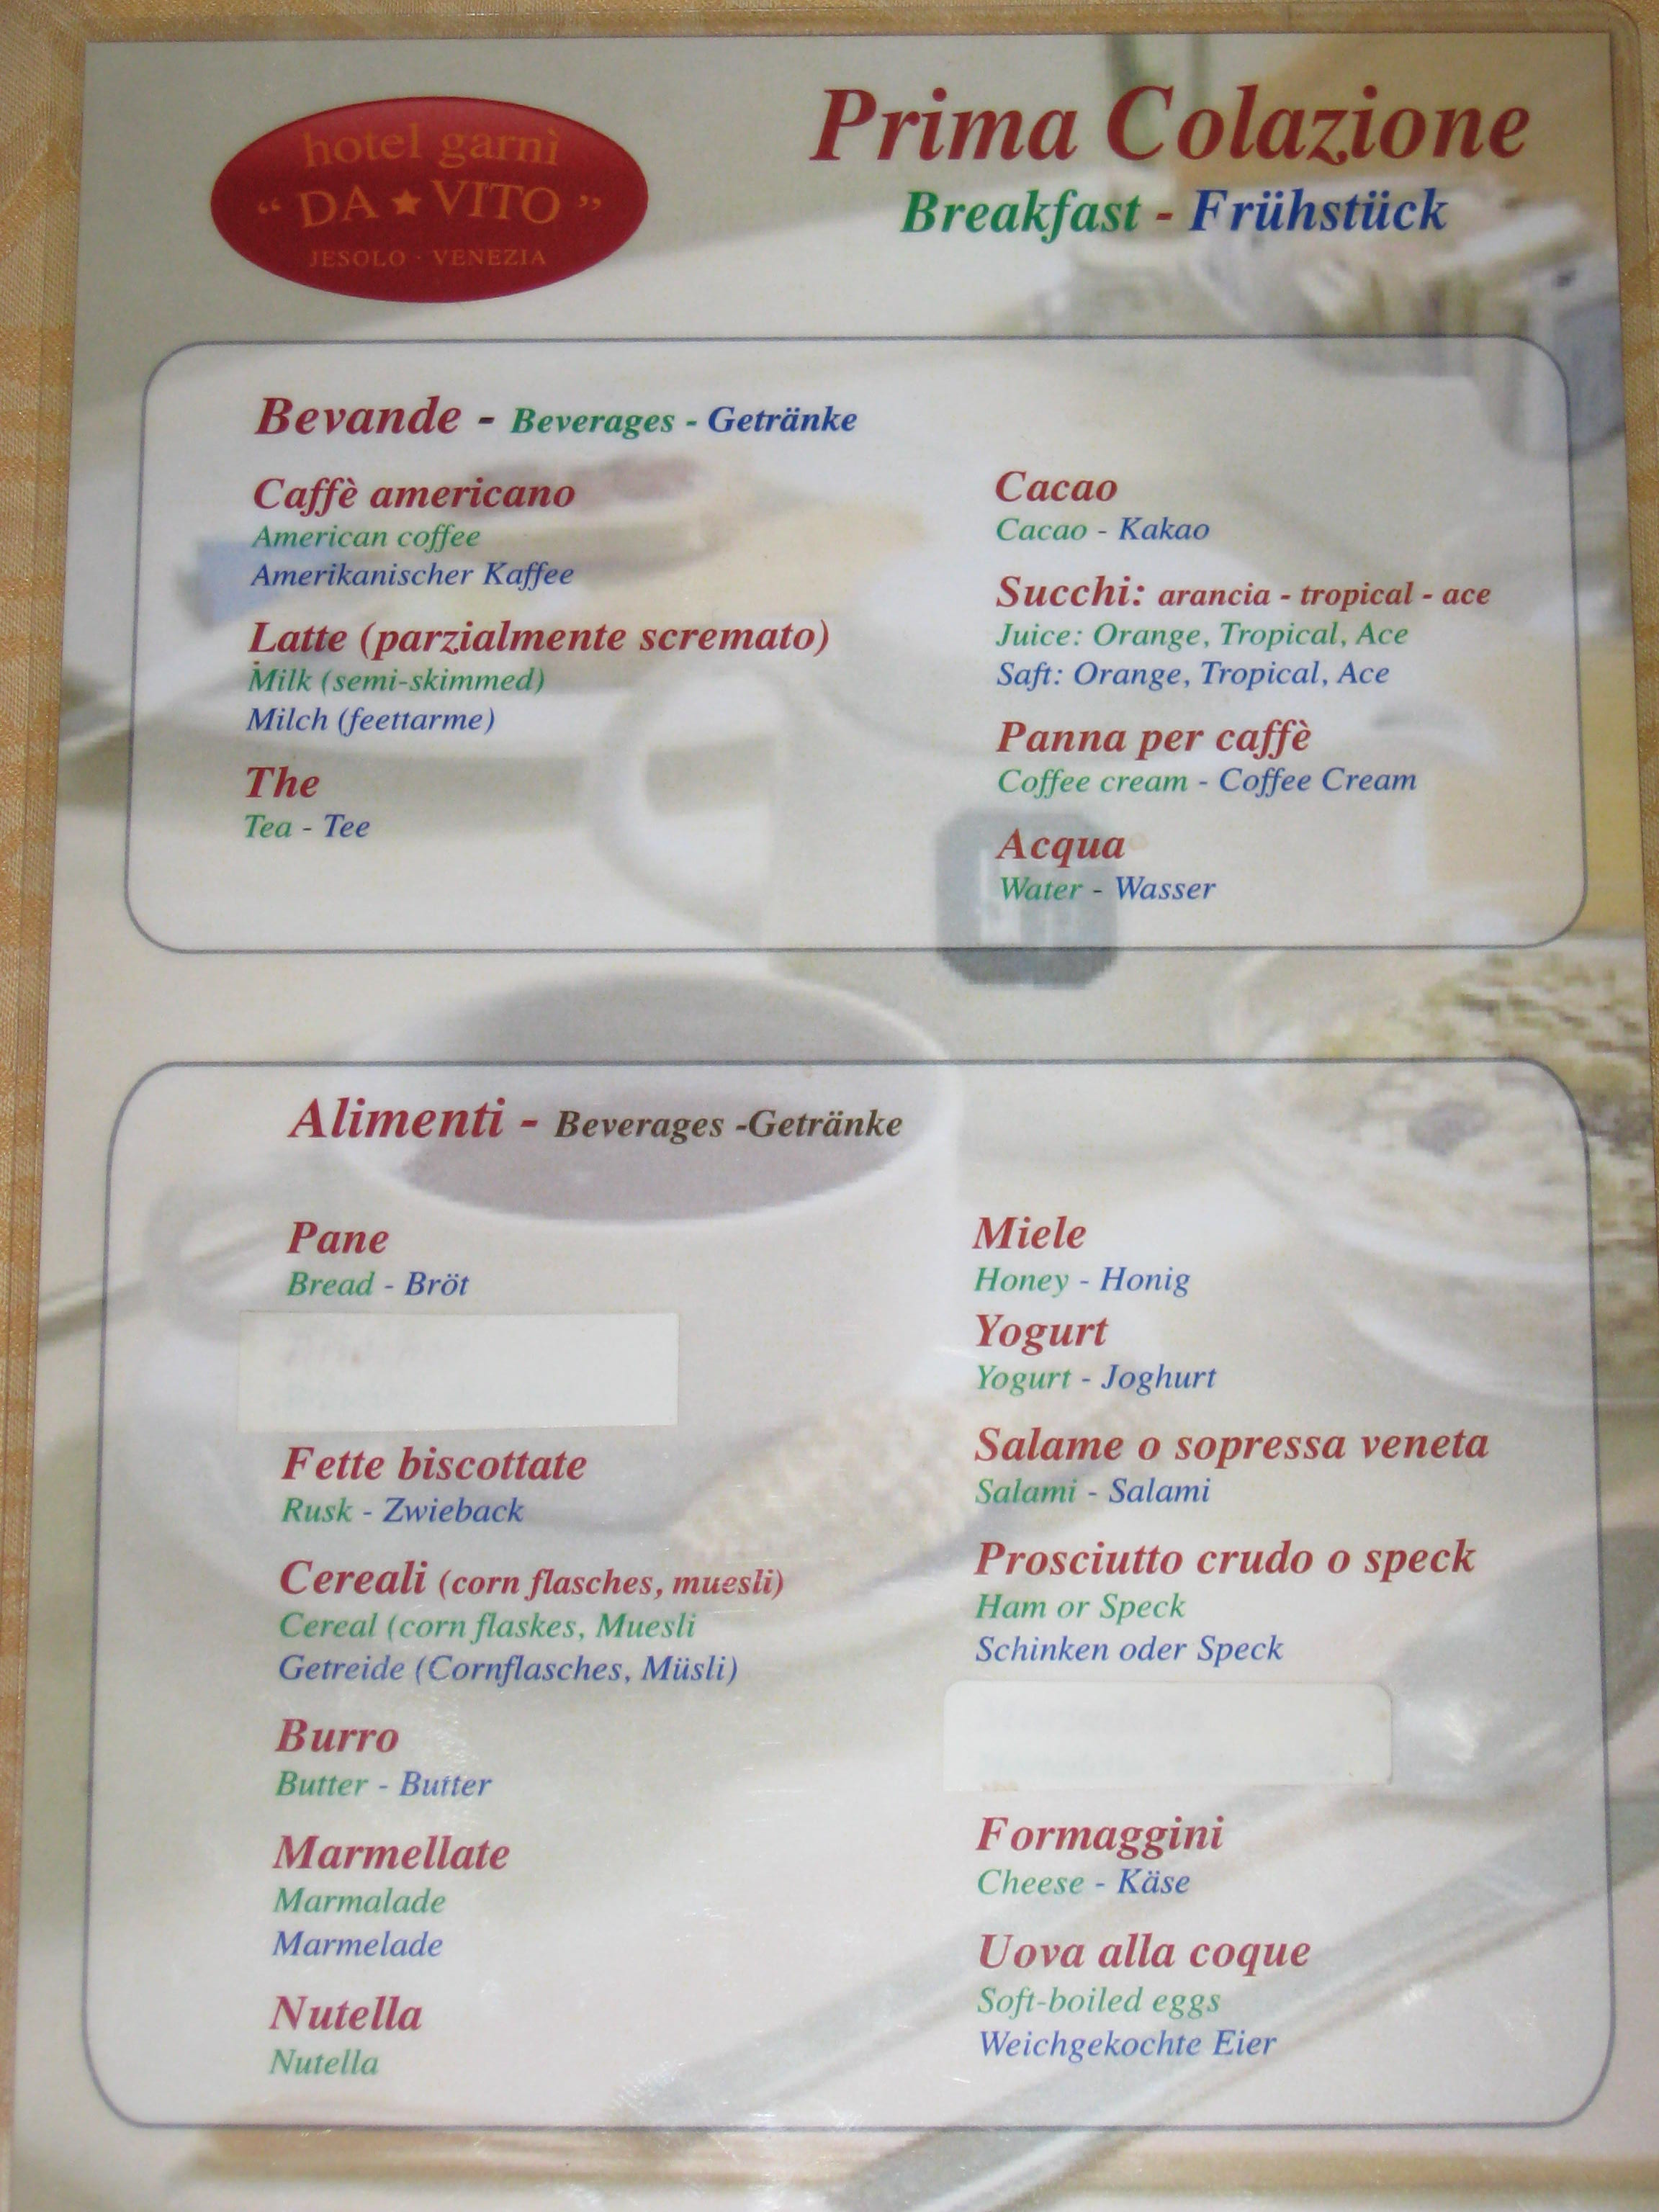 hotel garnì
“ DA ★ VITO ”
JESOLO · VENEZIA
Prima Colazione
Breakfast - Frühstück
Bevande - Beverages - Getränke
Caffè americano
American coffee
Amerikanischer Kaffee
Latte (parzialmente scremato)
Milk (semi-skimmed)
Milch (feettarme)
The
Tea - Tee
Cacao
Cacao - Kakao
Succhi: arancia - tropical - ace
Juice: Orange, Tropical, Ace
Saft: Orange, Tropical, Ace
Panna per caffè
Coffee cream - Coffee Cream
Acqua
Water - Wasser
Alimenti - Beverages -Getränke
Pane
Bread - Bröt
Fette biscottate
Rusk - Zwieback
Cereali (corn flasches, muesli)
Cereal (corn flaskes, Muesli
Getreide (Cornflasches, Müsli)
Burro
Butter - Butter
Marmellate
Marmalade
Marmelade
Nutella
Nutella
Miele
Honey - Honig
Yogurt
Yogurt - Joghurt
Salame o sopressa veneta
Salami - Salami
Prosciutto crudo o speck
Ham or Speck
Schinken oder Speck
Formaggini
Cheese - Käse
Uova alla coque
Soft-boiled eggs
Weichgekochte Eier